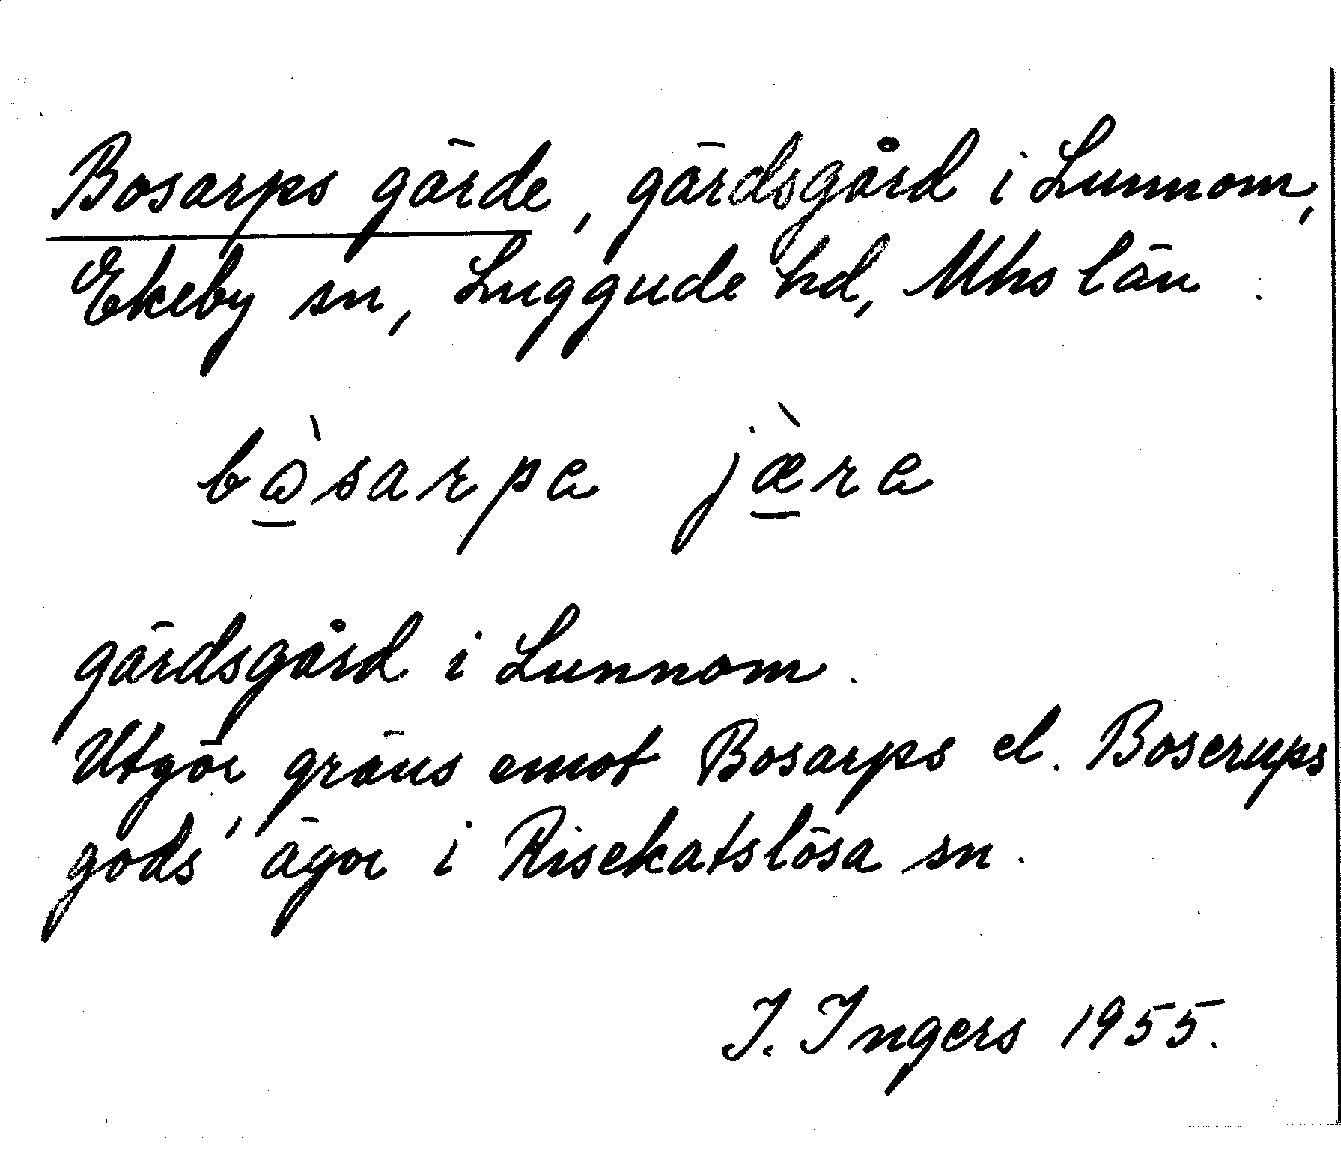 Bosarps gärde, gärdsgård i Lunnom,
Ekeby sn, Luggude hd, Mhs län.
bòsarpa jæ̀ra
gärdsgård i Lunnom.
Utgör gräns emot Bosarps el. Boserups
gods' ägor i Risekatslösa sn.
I. Ingers 1955.